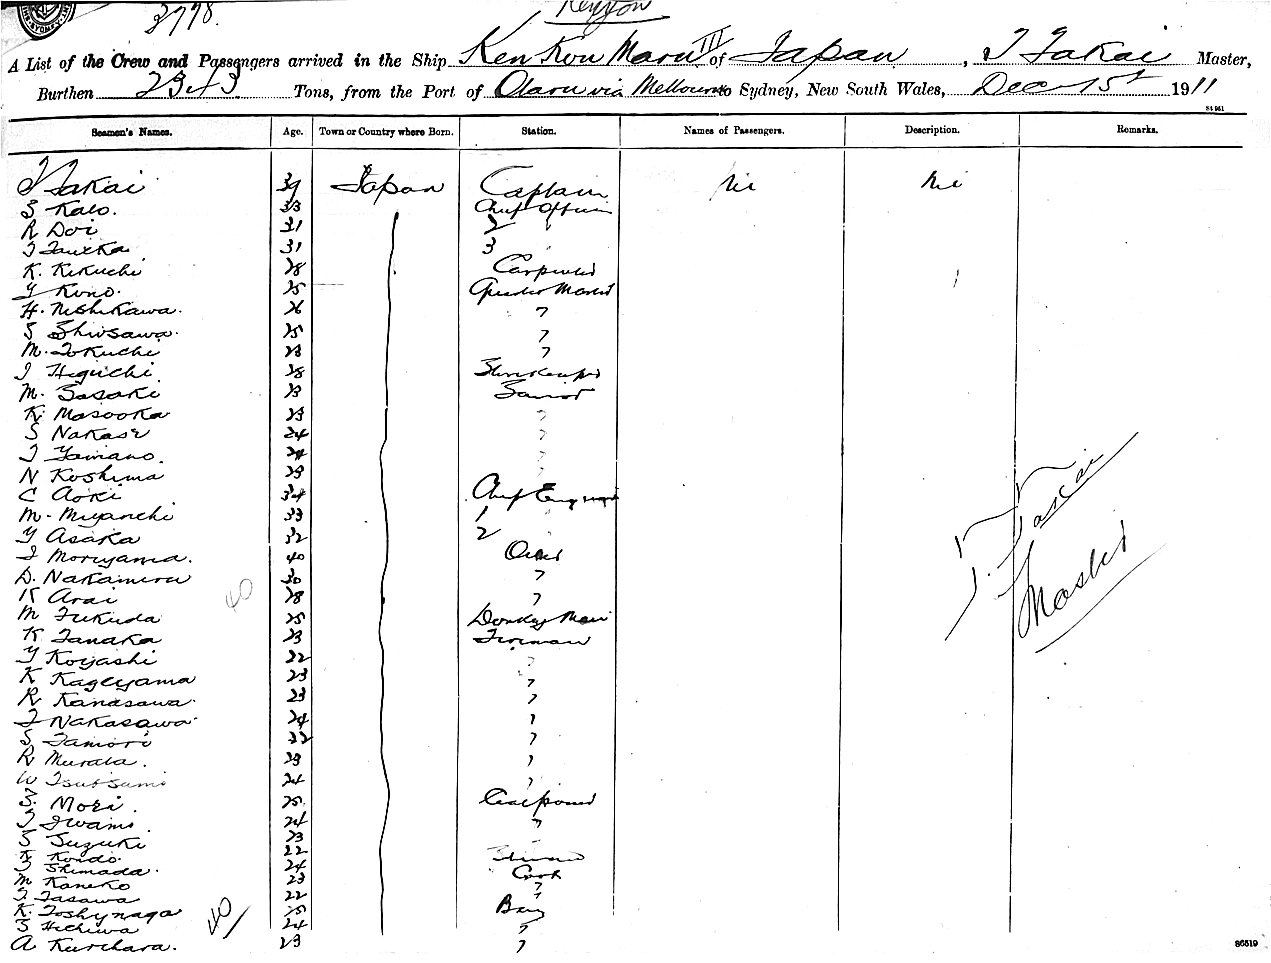 3778.
A List of the Crew and Passengers arrived in the Ship Ken Kon Maru III of Japan, T Takai Master,
Burthen 2343 Tons, from the Port of Otaru via Melbourne to Sydney, New South Wales, Dec 15th 1911
Seamen's Names. Age. Town or Country where Born. Station. Names of Passengers. Description. Remarks.
T Takai 39 Japan Captain Nil Nil
S Kato. 33 Chief Officer
R Doi 31 2 "
T Tanaka 31 3 "
K. Kikuchi 28 Carpenter
Y Kono. 25 Quarter Master
H. Nishikawa. 26 "
S Shiosawa. 25 "
M. Tokuchi 23 "
I Higuchi 28 Storekeeper
M. Sasaki 23 Sailor
K. Masooka 23 "
S Nakase 24 "
T Yamano. 24 "
N Koshima 23 "
C Aoki 34 Chief Engineer
M. Miyauchi 33 1 "
Y Asaka 32 2
I Moriyama. 40 Oiler
D. Nakamura 30 "
K Arai 28 "
M Fukuda 25 Donkey Man
K Tanaka 23 Fireman
Y Koyashi 22 "
K Kageyama 23 "
R Kanasawa. 23 "
T Nakasawa. 24 "
S Tamori 22 "
R Murata. 23 "
W Tsutsumi 24 "
S. Mori. 25.
T Iwami. 24 "
S Suzuki 23 "
K Kondo. 22
T Shimada. 24 Cook
M Kaneko 23 "
T. Tasawa 22 "
K. Toshynaga 25 Boy
S Hichiwa 24 "
A Kurihara. 23 "
40
40
T. Takai
Master
86519